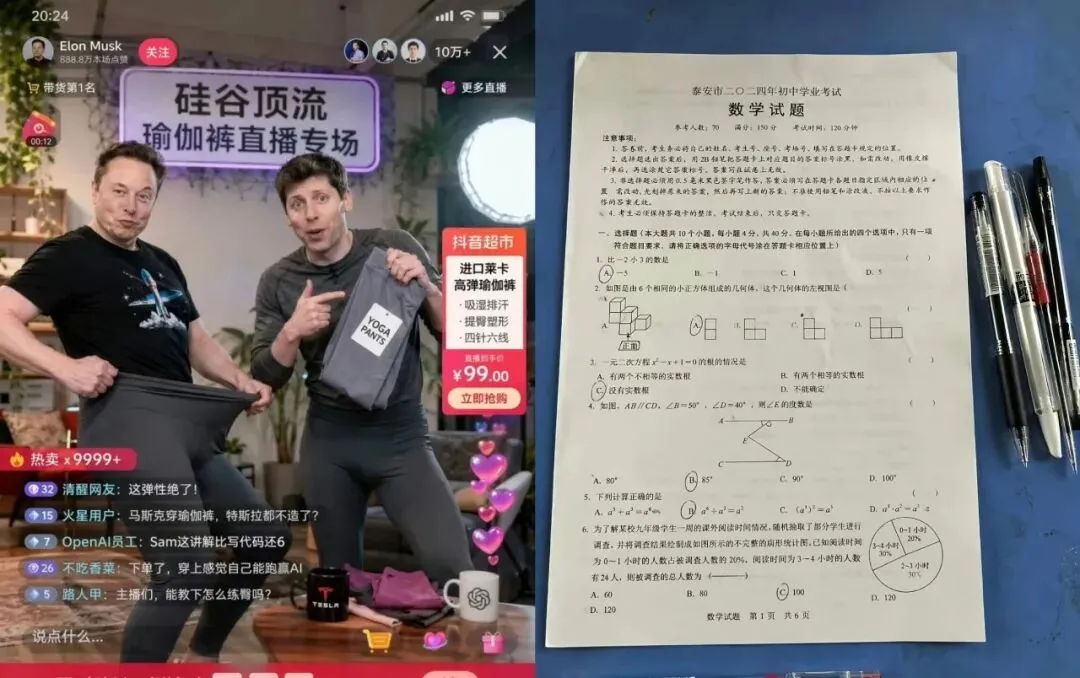 20:24
Elon Musk
888.8万本场点赞
关注
10万+
带货第1名
更多直播
00:12
硅谷顶流
瑜伽裤直播专场
抖音超市
进口莱卡
高弹瑜伽裤
· 吸湿排汗
· 提臀塑形
· 四针六线
直播到手价
¥99.00
立即抢购
YOGA
PANTS
热卖 x9999+
32 清醒网友：这弹性绝了！
15 火星用户：马斯克穿瑜伽裤，特斯拉都不造了？
7 OpenAI员工：Sam这讲解比写代码还6
26 不吃香菜：下单了，穿上感觉自己能跑赢AI
5 路人甲：主播们，能教下怎么练臀吗？
TESLA
说点什么...
泰安市二〇二四年初中学业考试
数学试题
参考人数：70 满分：150分 考试时间：120分钟
注意事项：
1. 答卷前，考生务必将自己的姓名、考生号、座号、考场号，填写在答题卡规定的位置。
2. 选择题选出答案后，用2B铅笔把答题卡上对应题目的答案标号涂黑，如需改动，用橡皮擦
干净后，再选涂其它答案标号。答案写在试卷上无效。
3. 非选择题必须用0.5毫米黑色签字笔作答，答案必须写在答题卡各题目指定区域内相应的位
置，需改动，先划掉原来的答案，然后再写上新的答案；不准使用铅笔和涂改液。不按以上要求作
答的答案无效。
4. 考生必须保持答题卡的整洁。考试结束后，只交答题卡。
一、选择题（本大题共10个小题，每小题4分，共40分。在每小题所给出的四个选项中，只有一项
符合题目要求，请将正确选项的字母代号涂在答题卡相应位置上）
1. 比－2小3的数是 （ ）
A. －5 B. －1 C. 1 D. 5
2. 如图是由6个相同的小正方体组成的几何体，这个几何体的左视图是（ ）
正面
A. B. C. D.
3. 一元二次方程x²－x＋1＝0的根的情况是 （ ）
A. 有两个不相等的实数根 B. 有两个相等的实数根
C. 没有实数根 D. 不能确定
4. 如图，AB∥CD，∠B＝50°，∠D＝40°，则∠E的度数是 （ ）
A B
E
C D
A. 80° B. 85° C. 90° D. 100°
5. 下列计算正确的是 （ ）
6. 为了解某校九年级学生一周的课外阅读时间情况，随机抽取了部分学生进行
调查，并将调查结果绘制成如图所示的不完整的扇形统计图。已知阅读时间
为0～1小时的人数占被调查人数的20%，阅读时间为3～4小时的人数
有24人，则被调查的总人数为（ ）
0~1小时
20%
3~4小时
30%
2~3小时
30%
A. 60 B. 80 C. 100 D. 120
D. 120
数学试题 第1页 共6页